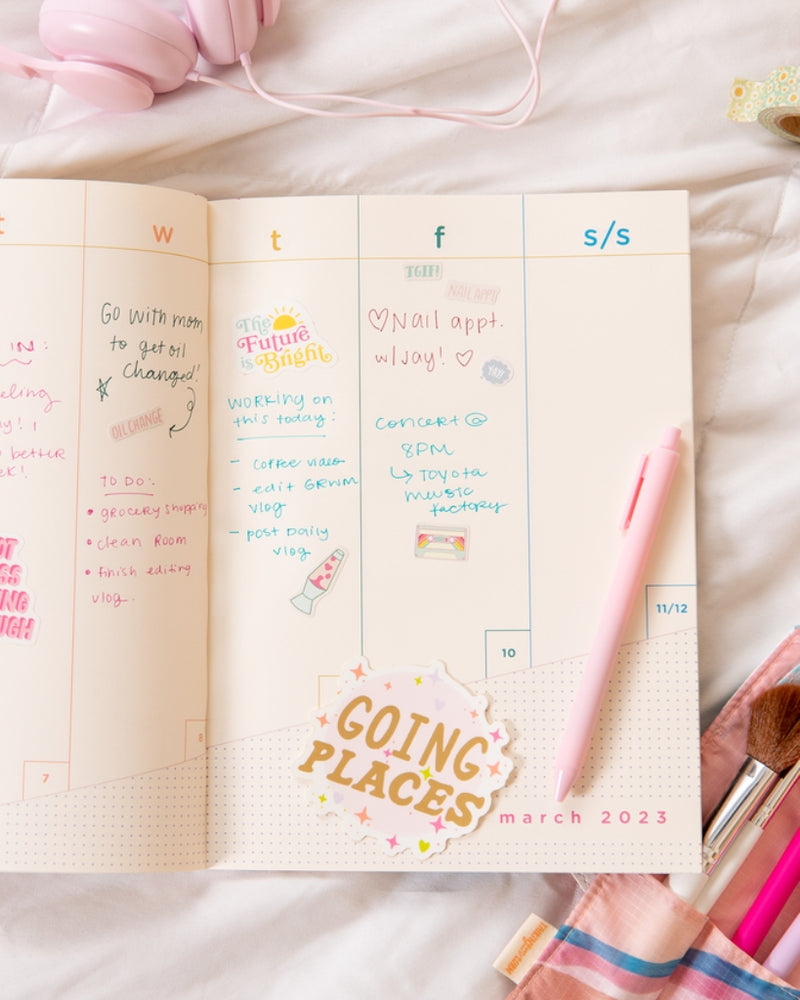 t
IN:
better
7
w
Go with mom
to get oil
changed!
OIL CHANGE
TO DO:
• grocery shopping
• clean room
• finish editing
vlog.
8
t
The
Future
is Bright
Working on
this today:
- coffee video
- edit GRWM
vlog
- post daily
vlog
f
TGIF!
NAIL APPT
Nail appt.
w/ Jay!
YAY!
concert @
8PM
↳ Toyota
music
factory
10
s/s
11/12
GOING
PLACES
march 2023